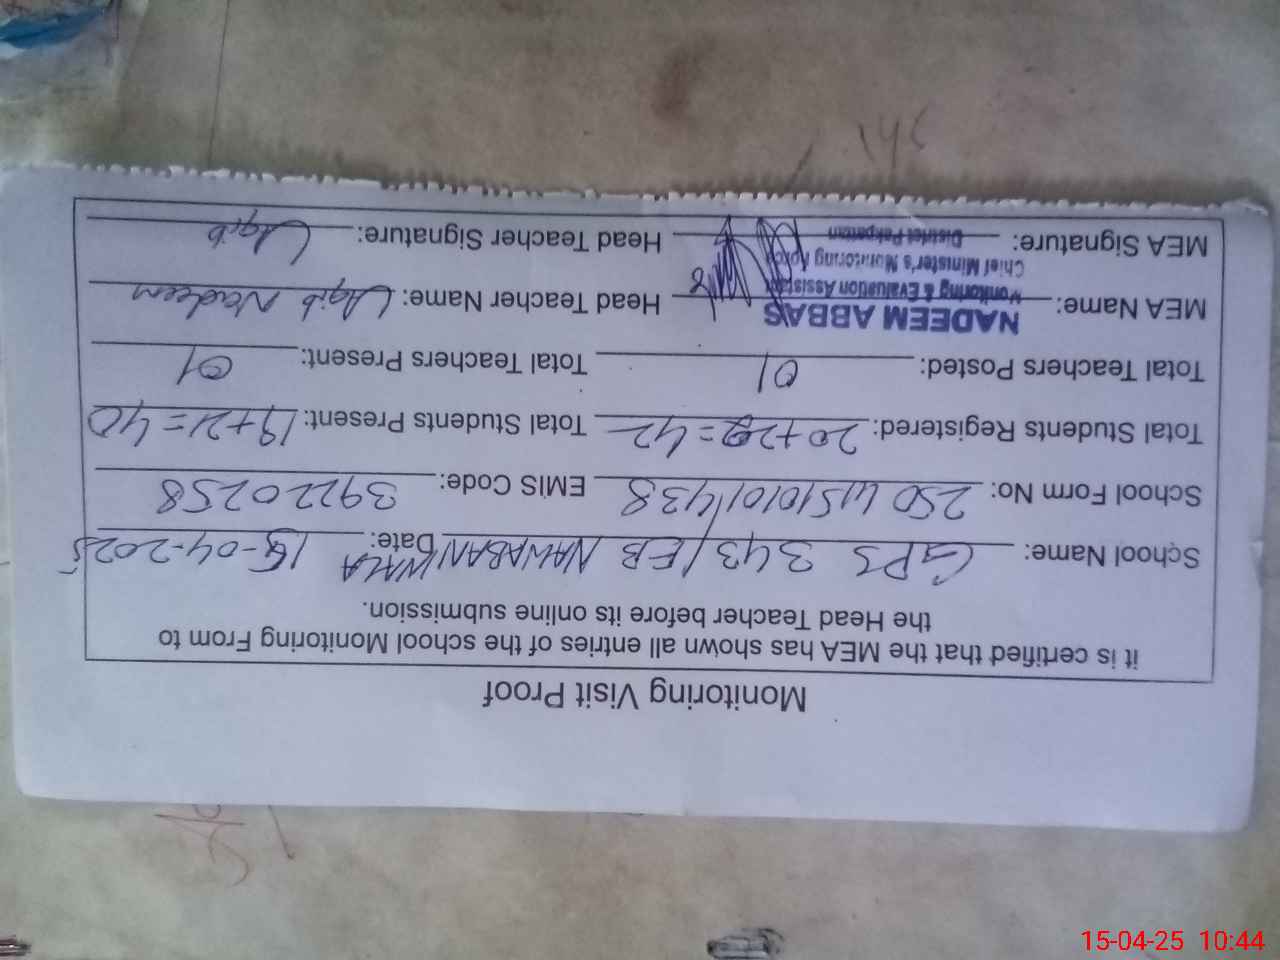 Monitoring Visit Proof
it is certified that the MEA has shown all entries of the school Monitoring From to
the Head Teacher before its online submission.
School Name: GPS 343/EB NAWABAN WALA Date: 15-04-2025
School Form No: 25041510101438 EMIS Code: 39220258
Total Students Registered: 20+22=42 Total Students Present: 19+21=40
Total Teachers Posted: 01 Total Teachers Present: 01
MEA Name: NADEEM ABBAS Head Teacher Name: Uqib Nadeem
Monitoring & Evaluation Assistant
Chief Minister's Monitoring Force
MEA Signature: District Pakpattan Head Teacher Signature: Uqib
15-04-25 10:44